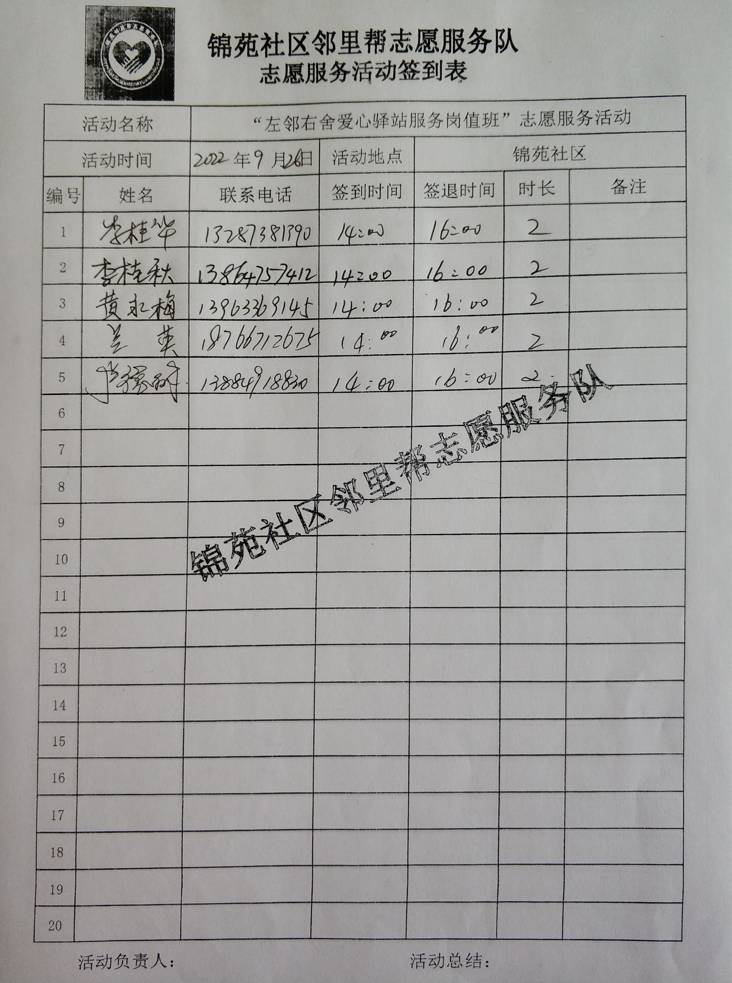 锦苑社区邻里帮志愿服务队
志愿服务活动签到表
活动名称 “左邻右舍爱心驿站服务岗值班”志愿服务活动
活动时间 2022年9月26日 活动地点 锦苑社区
编号 姓名 联系电话 签到时间 签退时间 时长 备注
1 李桂华 13287381390 14:00 16:00 2
2 李桂秋 13864757412 14:00 16:00 2
3 黄永梅 13963369145 14:00 16:00 2
4 兰英 18766712675 14:00 16:00 2
5 13884918830 14:00 16:00 2
6
7
8
9
10
11
12
13
14
15
16
17
18
19
20
锦苑社区邻里帮志愿服务队
活动负责人： 活动总结：